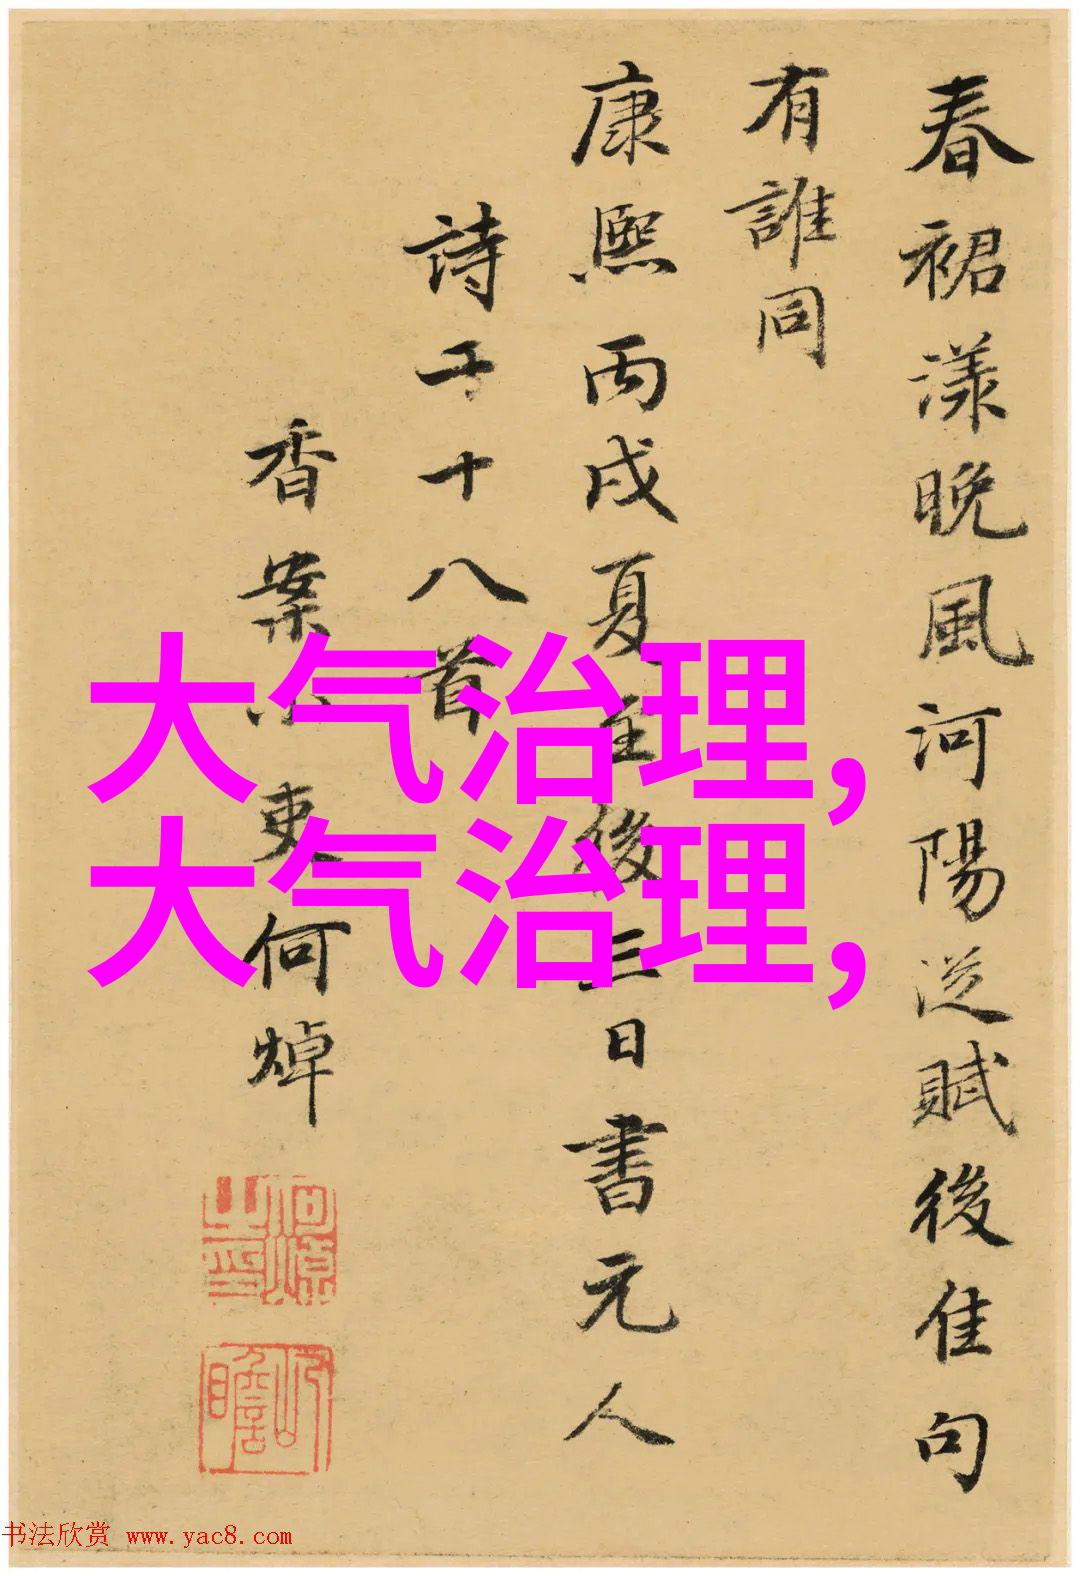 春裙漾晚風河陽從賦後佳句
有誰同
康熙丙戌夏至後三日書元人
詩五十八首
香案小吏何焯
大气治理,
大气治理,
书法欣赏 www.yac8.com